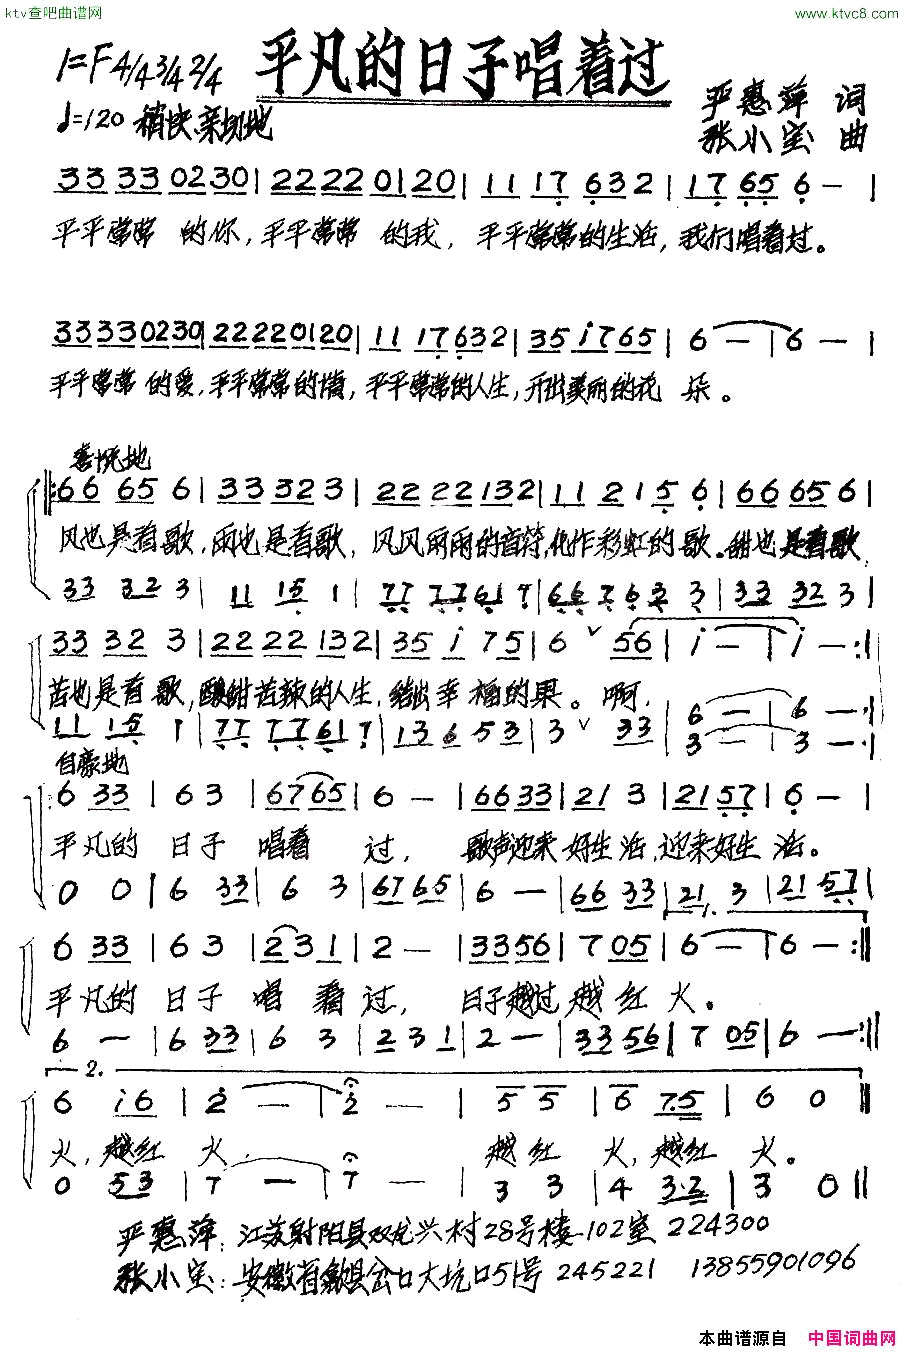 ktv查吧曲谱网
www.ktvc8.com
平凡的日子唱着过
1=F 4/4 3/4 2/4
♩=120 稍快亲切地
严惠萍 词
张小宝 曲
33 33 02 30 | 22 22 01 20 | 11 17 6 3 2 | 17 65 6 — |
平平常常 的你,平平常常 的我,平平常常的生活,我们唱着过。
33 33 02 30 | 22 22 01 20 | 11 17 6 3 2 | 35 i7 65 | 6 — | 6 — |
平平常常 的爱,平平常常的情,平平常常的人生,开出美丽的花 朵。
喜悦地
66 65 6 | 33 32 3 | 22 22 13 2 | 11 21 5 6 | 66 65 6 |
风也是首歌,雨也是首歌,风风雨雨的音符,化作彩虹的歌。甜也是首歌
33 32 3 | 11 15 1 | 77 77 61 7 | 66 76 3 3 | 33 32 3 |
33 32 3 | 22 22 13 2 | 35 i 75 | 6 ∨ 56 | i — | i — :|
苦也是首歌,酿甜苦辣的人生,结出幸福的果。啊,
11 15 1 | 77 77 61 7 | 13 6 53 | 3 ∨ 33 | 6 — | 6 — :|
3 — | 3 — :|
自豪地
6 33 | 6 3 | 67 65 | 6 — | 66 33 | 21 3 | 21 57 | 6 — |
平凡的 日子 唱着 过, 歌声迎来 好生活,迎来好生 活。
0 0 | 6 33 | 6 3 | 67 65 | 6 — | 66 33 | 21 3 | 21 57 |
1.
6 33 | 6 3 | 23 1 | 2 — | 33 56 | 7 05 | 6 — | 6 — :||
平凡的 日子 唱 着 过, 日子越过 越红 火。
6 — | 6 33 | 6 3 | 23 1 | 2 — | 33 56 | 7 05 | 6 — :||
2.
6 i6 | 2 — | 2 — | 5 5 | 6 7·5 | 6 0 ||
火,越红 火, 越红 火,越红 火。
0 53 | 7 — | 7 — | 3 3 | 4 3·2 | 3 0 ||
严惠萍:江苏射阳县双龙兴村28号楼102室 224300
张小宝:安徽省歙县岔口大坑口51号 245221 13855901096
本曲谱源自 中国词曲网